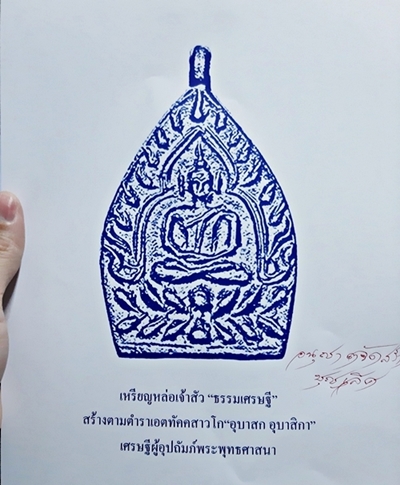 เหรียญหล่อเจ้าสัว “ธรรมเศรษฐี”
สร้างตามตำราเอตทัคคสาวโก“อุบาสก อุบาสิกา”
เศรษฐีผู้อุปถัมภ์พระพุทธศาสนา